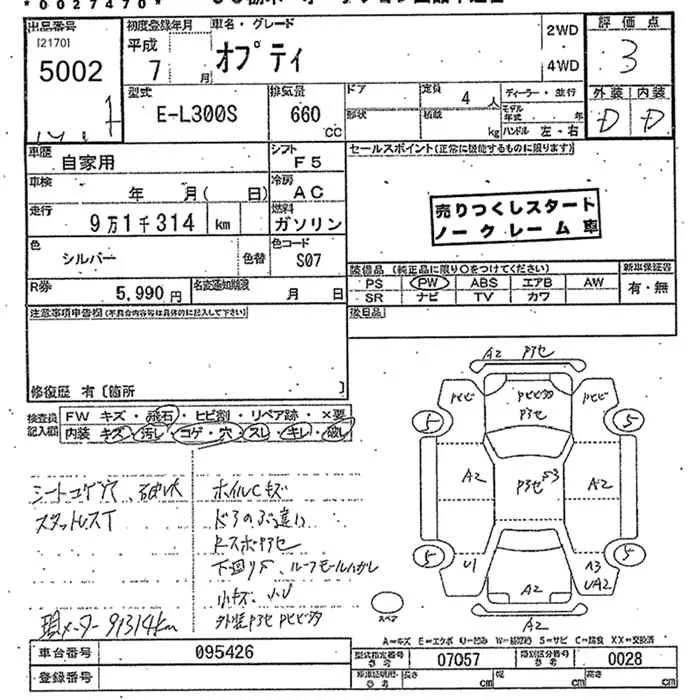 *0027470*
出品番号
[2170]
5002
初度登録年月
平成
7 月
車名・グレード
オプティ
2WD
4WD
評価点
3
型式
E-L300S
排気量
660
CC
ドア
形状
定員
4 人
積載
kg
ディーラー・並行
モデル年式
ハンドル 左・右
外装 内装
D D
車歴
自家用
シフト
F5
セールスポイント(正常に機能するものに限ります)
車検
年 月( 日)
冷房
AC
走行
9万1千314 km
燃料
ガソリン
売りつくしスタート
ノークレーム車
色
シルバー
色替
色コード
S07
装備品 (純正品に限り○をつけてください)
新車保証書
PS PW ABS エアB AW
有・無
SR ナビ TV カワ
R券
5,990 円
名変通知期限
月 日
注意事項申告欄(不具合内容等は具体的に記入して下さい)
後日品
修復歴 有 〔箇所 〕
検査員
記入欄
FW キズ・飛石・ヒビ割・リペア跡・×要
内装 キズ・汚レ・コゲ・穴・スレ・キレ・破レ
シートコゲ穴、破れ
スタットレスT
ホイルCキズ
ドアのぶ違い
Rスポアセ
下回りS ルーフモールハガレ
小キズ、小U
現メーター91314km
A2
A2
A2
A2
A2
U1
UA2
5
5
5
スペア
A=キズ E=エクボ U=凹み W=補修跡 S=サビ C=腐食 XX=交換済
車台番号
095426
型式指定番号
参考
07057
類別区分番号
参考
0028
登録番号
参考
長さ cm
幅 cm
高さ cm